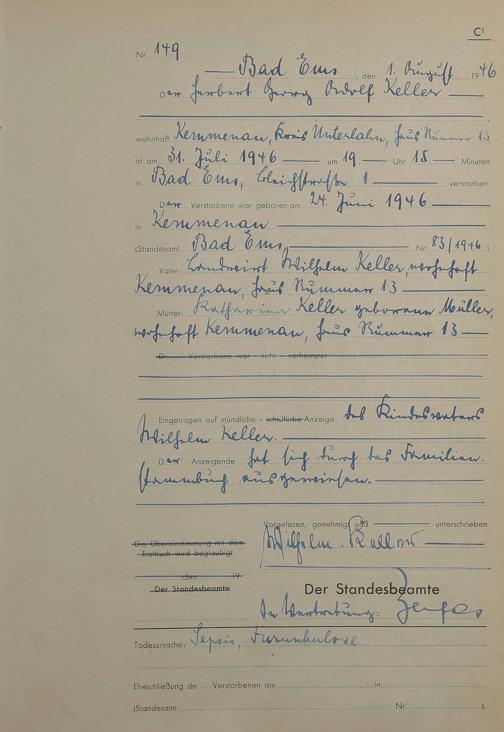 C1
Nr. 149
Bad Ems, den 1. August 1946
Der Herbert Georg Adolf Keller
wohnhaft Kemmenau, Kreis Unterlahn, Haus Nummer 13
ist am 31. Juli 1946 um 19 Uhr 15 Minuten
in Bad Ems, Bleichstraße 1 verstorben.
Der Verstorbene war geboren am 24. Juni 1946
in Kemmenau
(Standesamt Bad Ems, Nr. 83/1946)
Vater: Landwirt Wilhelm Keller, wohnhaft
Kemmenau, Haus Nummer 13
Mutter: Katharina Keller geborene Müller,
wohnhaft Kemmenau, Haus Nummer 13
D Verstorbene war - nicht - verheiratet
Eingetragen auf mündliche - schriftliche - Anzeige des Kindesvaters
Wilhelm Keller.
Der Anzeigende hat sich durch das Familien-
stammbuch ausgewiesen.
Vorgelesen, genehmigt und unterschrieben
Wilhelm Keller
Die Übereinstimmung mit dem
Erstbuch wird beglaubigt
, den 19
Der Standesbeamte
Der Standesbeamte
In Vertretung:
Todesursache: Sepsis, Furunkulose
Eheschließung de Verstorbenen am in
(Standesamt Nr. ).